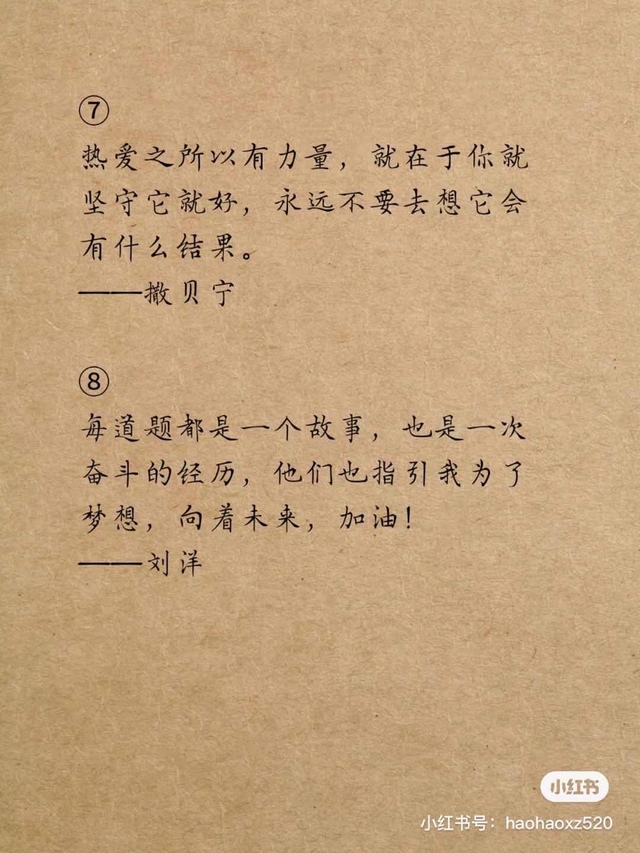 ⑦
热爱之所以有力量，就在于你就
坚守它就好，永远不要去想它会
有什么结果。
——撒贝宁
⑧
每道题都是一个故事，也是一次
奋斗的经历，他们也指引我为了
梦想，向着未来，加油！
——刘洋
小红书
小红书号：haohaoxz520